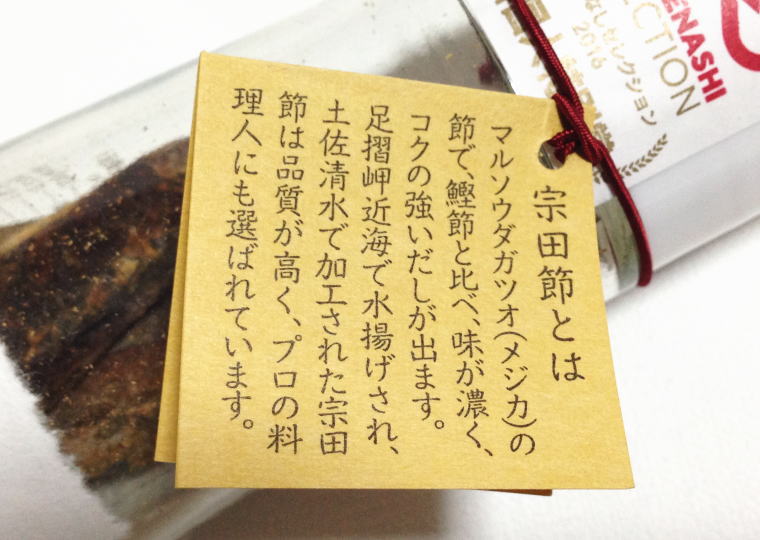 宗田節とは
マルソウダガツオ(メジカ)の
節で、鰹節と比べ、味が濃く、
コクの強いだしが出ます。
足摺岬近海で水揚げされ、
土佐清水で加工された宗田
節は品質が高く、プロの料
理人にも選ばれています。
ENASHI
ECTION
なしセレクション
2016